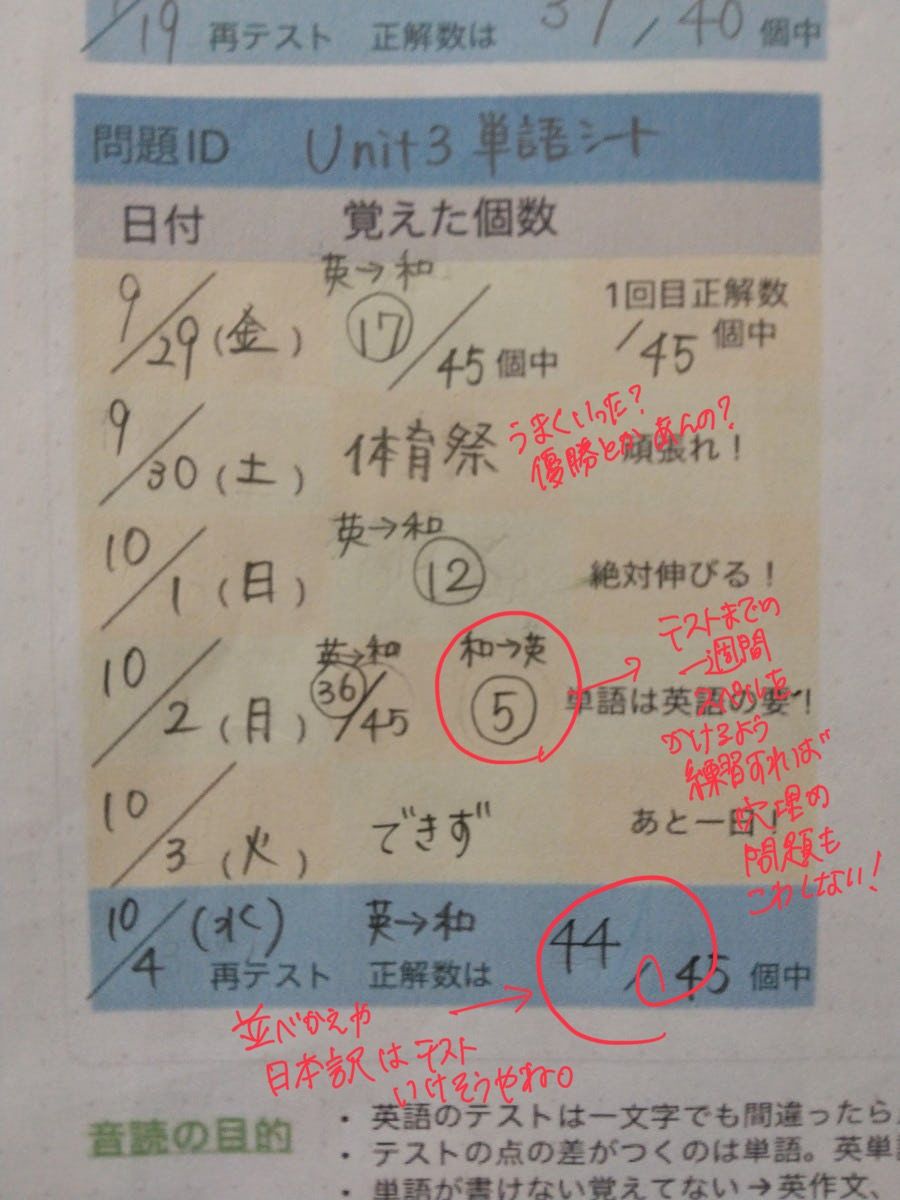 /19 再テスト 正解数は 37/40 個中
問題ID Unit3 単語シート
日付 覚えた個数
9/29(金) 英→和 17/45個中 1回目正解数 /45個中
9/30(土) 体育祭 頑張れ!
うまくいった?
優勝とかあんの?
10/1(日) 英→和 12 絶対伸びる!
10/2(月) 英→和 36/45 和→英 5 単語は英語の要!
テストまでの
一週間
かけるよう
練習すれば
穴埋の
問題も
こわしない!
10/3(火) できず あと一日!
10/4(水) 再テスト 英→和 正解数は 44/45個中
並べかえや
日本訳はテスト
いけそうやね。
音読の目的
・英語のテストは一文字でも間違ったら
・テストの点の差がつくのは単語。英単
・単語が書けない覚えてない→英作文、